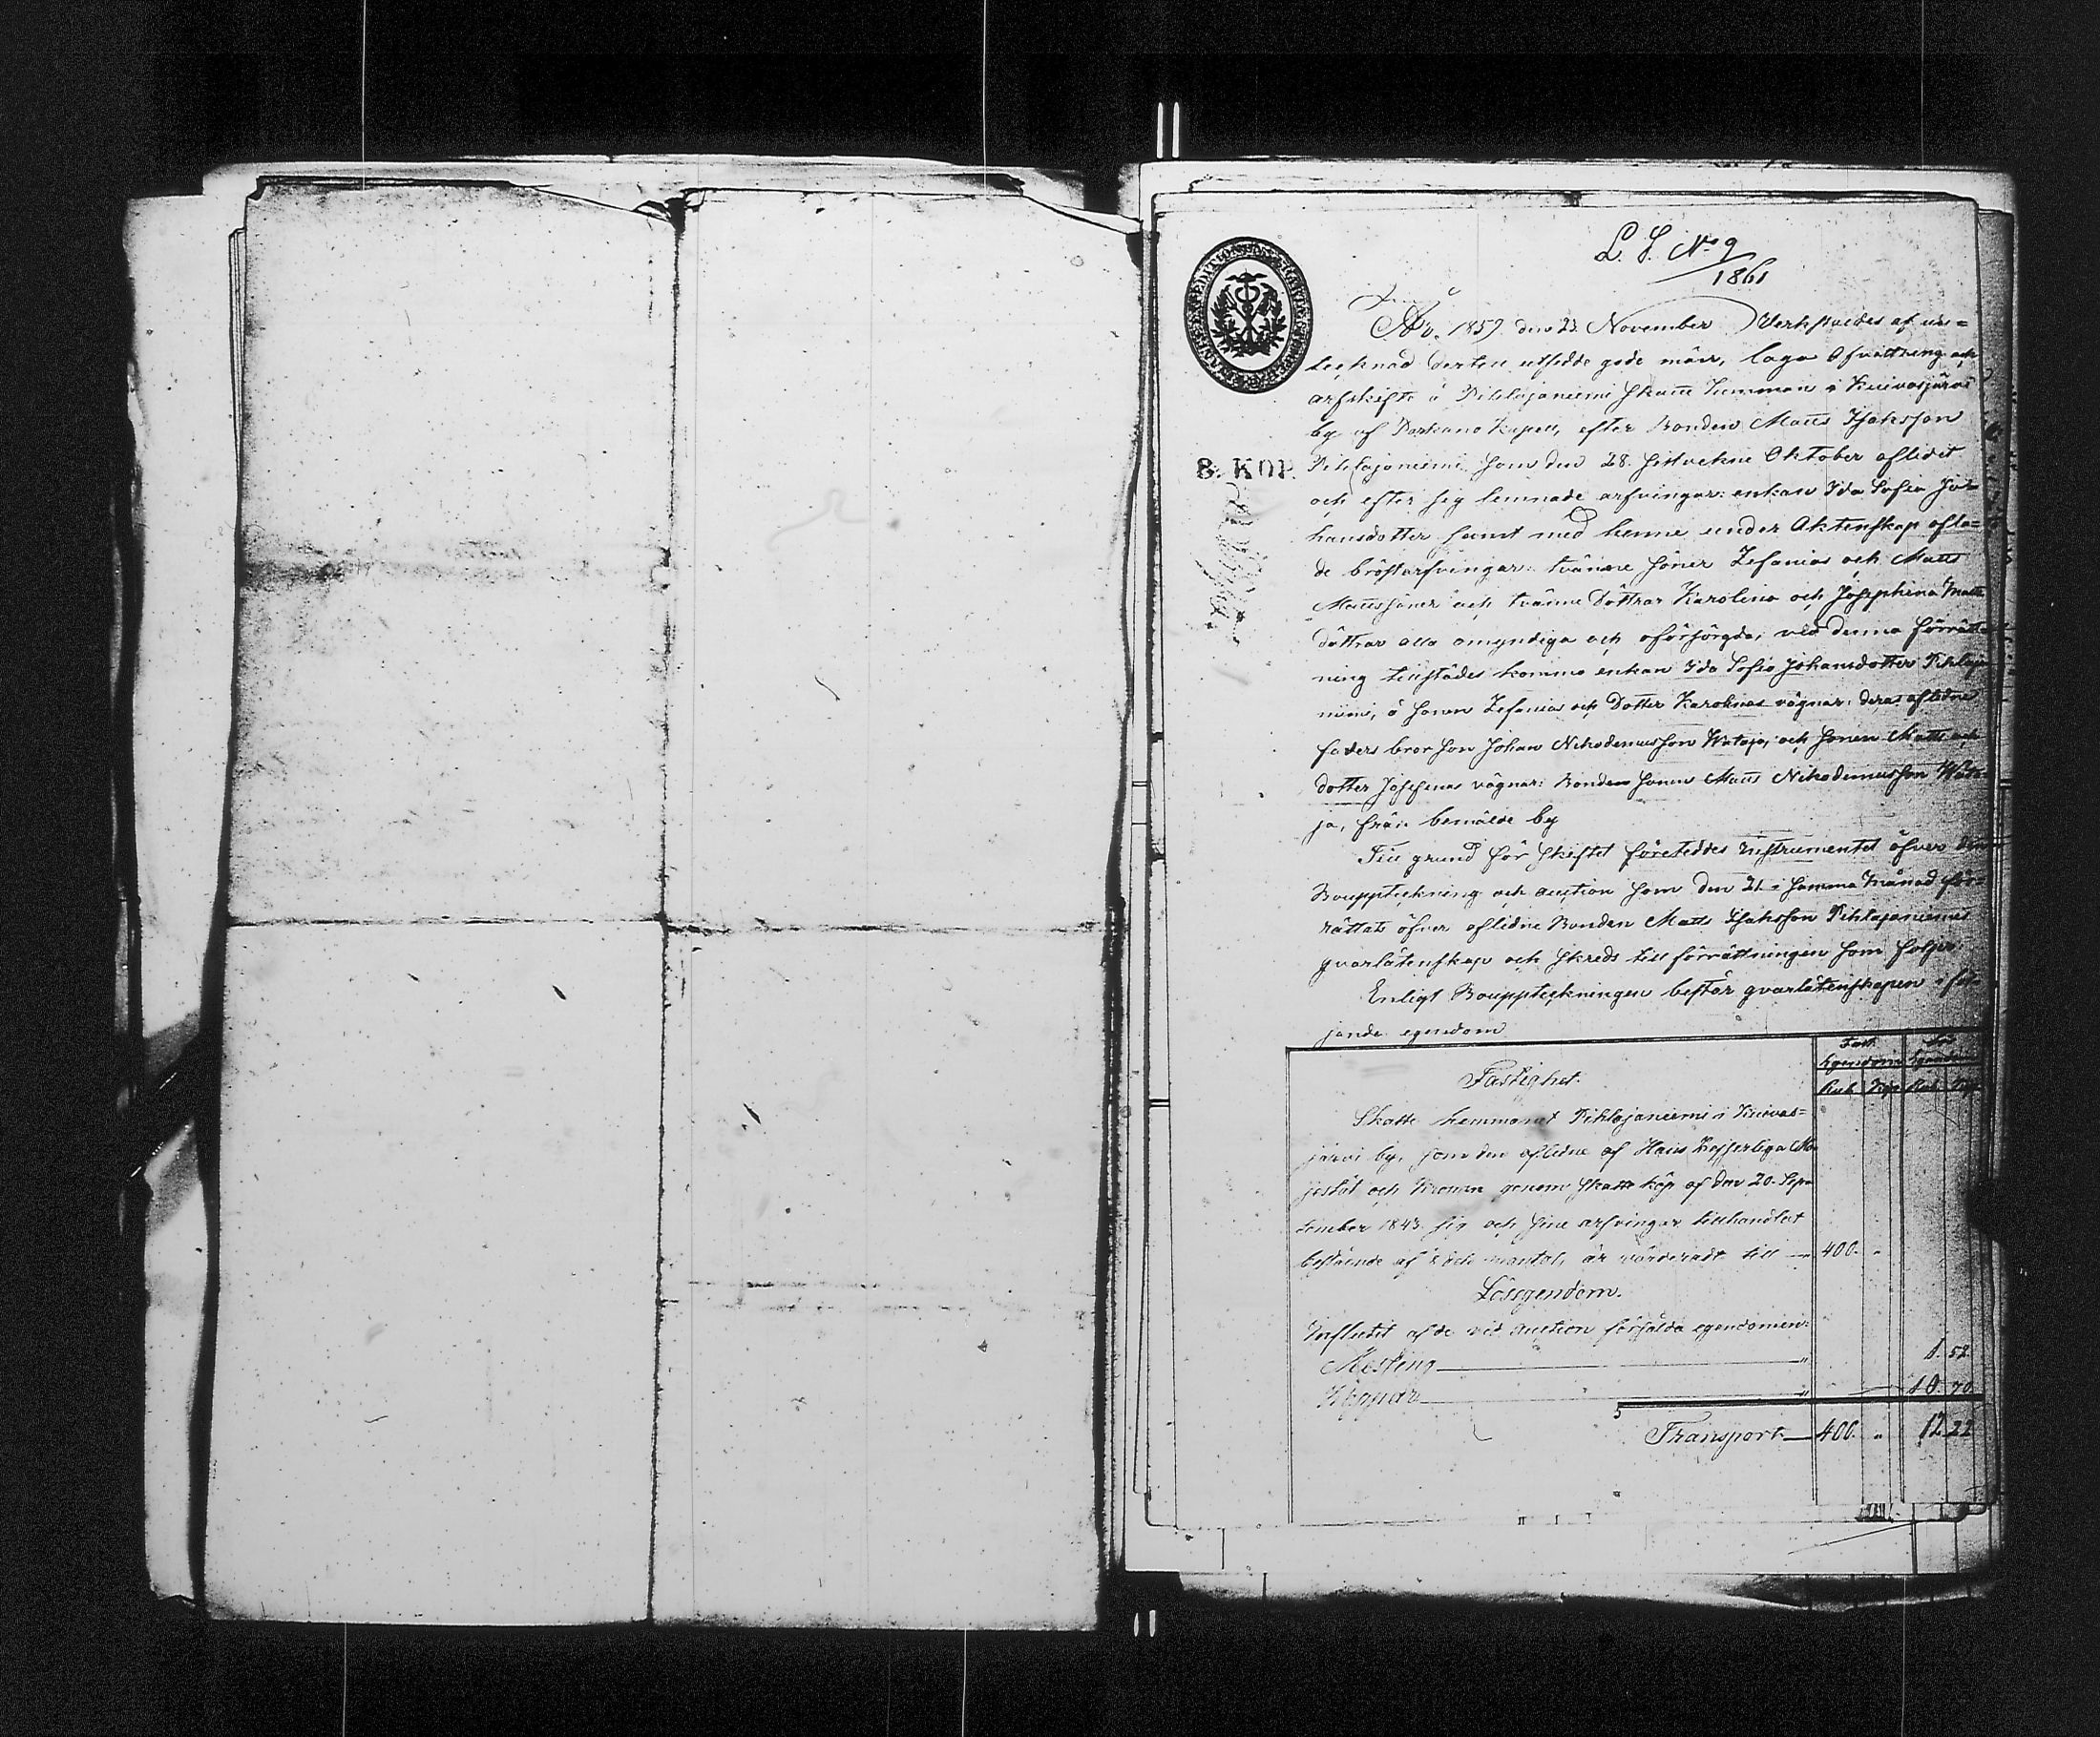 L. S. No 9
1861
År 1859 den 23 November Verkstäldes af un=
tecknad dertill utsedde gode män, laga Afvittring och
arfskifte å Pihlajaniemi Skatte Hemman i Kuivasjärvi
by af Parkano Kapell, efter Bonden Matts Isaksson
8. KOP.
Pihlajaniemi som den 28. sistvekne Oktober aflidit
och efter sig lemnade arfvingar: enkan Ida Sofia Jo=
hansdotter samt med henne under Äktenskap afla=
de bröstarfvingar: tvänne söner Zefanias och Matts
Mattssöner och tvänne Döttrar Karolina och Josephina Matts
döttrar alla omyndiga och oförsörgda; vid denna förrätt
ning tillstädes kommo enkan Ida Sofia Johansdotter Pihlaja
niemi, å Sonen Zefanias och Dotter Karolinas vägnar: deras aflidne
faders bror son Johan Nikodemusson Wataja, och Sonen Matts och
dotter Josefinas vägnar: Bonde Sonen Matts Nikodemusson Wata
ja, från bemälde by
Till grund för Skiftet företeddes Instrumentet öfver den
Bouppteckning och auction som den 21 i samma Månad för=
rättats öfver aflidne Bonden Matts Isaksson Pihlajaniemis
qvarlåtenskap och skreds till förrättningen som följer:
Enligt Bouppteckningen består qvarlåtenskapen i föl=
jande egendom
Fast Egendom Lös Egendom
Rub. Kop. Rub. Kop.
Fastighet.
Skatte hemmanet Pihlajaniemi i Kuivas=
järvi by, som den aflidne af Hans Kejserliga Ma
jestät och Kronan genom Skatte köp af den 20. Sep=
tember 1843 sig och sine arfvingar tillhandlat
bestående af dels mantal, är värderadt till — 400. "
Lösegendom.
Influtit af de vid Auction försålda egendomen:
Messing — " 1. 52
Koppar — " 10. 70
Transport — 400. " 12. 22